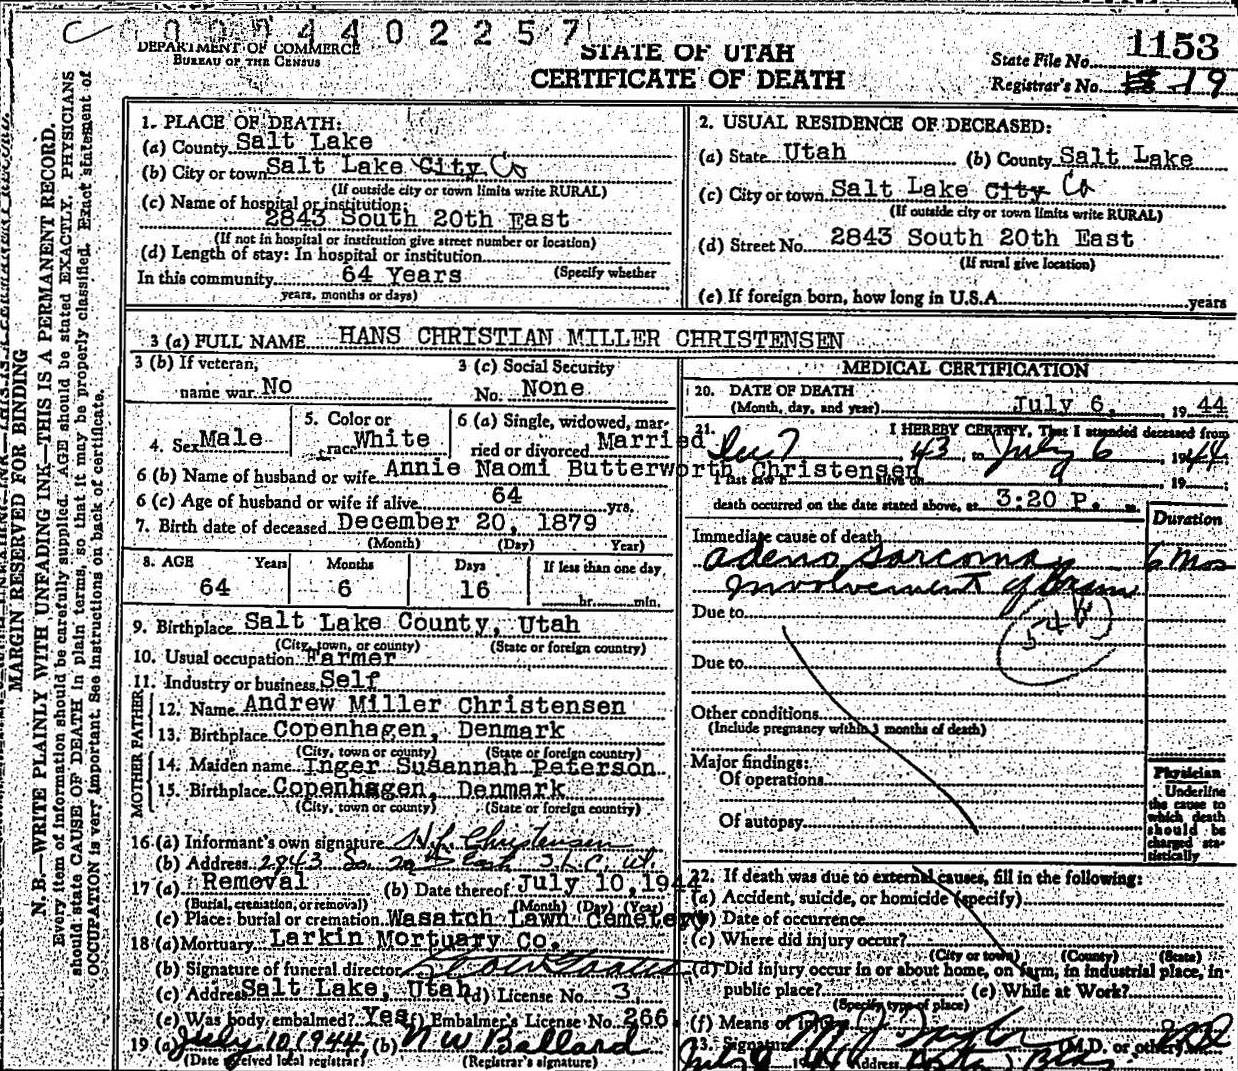 C 0 0 0 4 4 0 2 2 5 7
DEPARTMENT OF COMMERCE
BUREAU OF THE CENSUS
STATE OF UTAH
CERTIFICATE OF DEATH
State File No. 1153
Registrar's No. 19
MARGIN RESERVED FOR BINDING
N. B.—WRITE PLAINLY WITH UNFADING INK—THIS IS A PERMANENT RECORD.
Every item of information should be carefully supplied. AGE should be stated EXACTLY. PHYSICIANS
should state CAUSE OF DEATH in plain terms, so that it may be properly classified. Exact statement of
OCCUPATION is very important. See instructions on back of certificate.
1. PLACE OF DEATH:
(a) County Salt Lake
(b) City or town Salt Lake City Co
(If outside city or town limits write RURAL)
(c) Name of hospital or institution:
2843 South 20th East
(If not in hospital or institution give street number or location)
(d) Length of stay: In hospital or institution
In this community 64 Years (Specify whether
years, months or days)
2. USUAL RESIDENCE OF DECEASED:
(a) State Utah (b) County Salt Lake
(c) City or town Salt Lake City Co
(If outside city or town limits write RURAL)
(d) Street No. 2843 South 20th East
(If rural give location)
(e) If foreign born, how long in U.S.A. years
3 (a) FULL NAME HANS CHRISTIAN MILLER CHRISTENSEN
3 (b) If veteran,
name war No
3 (c) Social Security
No. None
4. Sex Male
5. Color or
race White
6 (a) Single, widowed, mar-
ried or divorced Married
6 (b) Name of husband or wife Annie Naomi Butterworth Christensen
6 (c) Age of husband or wife if alive 64 yrs.
7. Birth date of deceased December 20, 1879
(Month) (Day) Year)
8. AGE Years Months Days If less than one day
64 6 16 hr. min.
9. Birthplace Salt Lake County, Utah
(City, town, or county) (State or foreign country)
10. Usual occupation Farmer
11. Industry or business Self
FATHER
12. Name Andrew Miller Christensen
13. Birthplace Copenhagen, Denmark
(City, town or county) (State or foreign country)
MOTHER
14. Maiden name Inger Susannah Peterson
15. Birthplace Copenhagen, Denmark
(City, town or county) (State or foreign country)
16 (a) Informant's own signature Christensen
(b) Address 2843 So. 20th East S.L.C. Ut.
17 (a) Removal (b) Date thereof July 10, 1944
(Burial, cremation, or removal) (Month) (Day) (Year)
(c) Place: burial or cremation Wasatch Lawn Cemetery
18 (a) Mortuary Larkin Mortuary Co.
(b) Signature of funeral director
(c) Address Salt Lake, Utah (d) License No. 3
(e) Was body embalmed? Yes (f) Embalmer's License No. 266
19 (a) July 10 1944 (b) N W Ballard
(Date received local registrar) (Registrar's signature)
MEDICAL CERTIFICATION
20. DATE OF DEATH
(Month, day, and year) July 6, 19 44
21. I HEREBY CERTIFY, That I attended deceased from
Dec 7, 43 to July 6 1944
I last saw h alive on 19
death occurred on the date stated above, at 3:20 P. m.
Duration
Immediate cause of death
adeno sarcoma 6 Mos
involvement of Brain
Due to
54
Due to
Other conditions
(Include pregnancy within 3 months of death)
Major findings:
Of operations
Of autopsy
Physician
Underline
the cause to
which death
should be
charged sta-
tistically
22. If death was due to external causes, fill in the following:
(a) Accident, suicide, or homicide (specify)
(b) Date of occurrence
(c) Where did injury occur?
(City or town) (County) (State)
(d) Did injury occur in or about home, on farm, in industrial place, in
public place? (e) While at Work?
(Specify type of place)
(f) Means of injury
23. Signature M. J. Taylor (M.D. or other)
Address